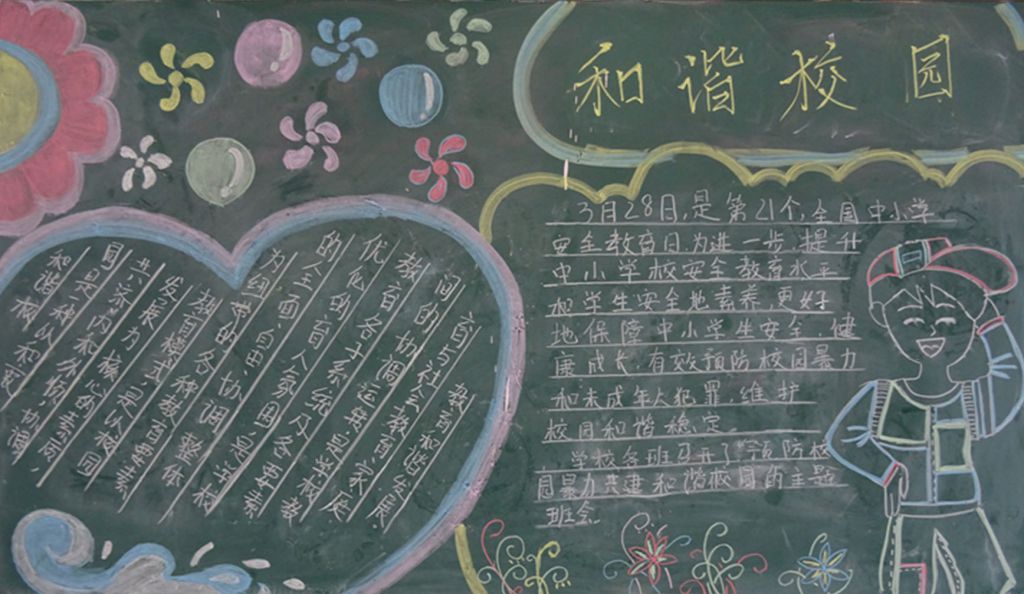 和谐校园
3月28日,是第21个,全国中小学
安全教育日,为进一步提升
中小学校安全教育水平
和学生安全地素养,更好
地保障中小学生安全、健
康成长,有效预防校园暴力
和未成年人犯罪,维护
校园和谐稳定
学校各班召开了"预防校
园暴力共建和谐校园的主题
班会
和谐校
园是一种以和衷
共济、内和外顺,协调
发展为核心的素质
教育模式,是以校园
为纽带的各种教育要素
的全面、自由、协调、整体
优化的育人氛围,是学校
教育各子系统及各要素
间的协调运转,是学校教
育与社会教育、家庭
教育和谐发展